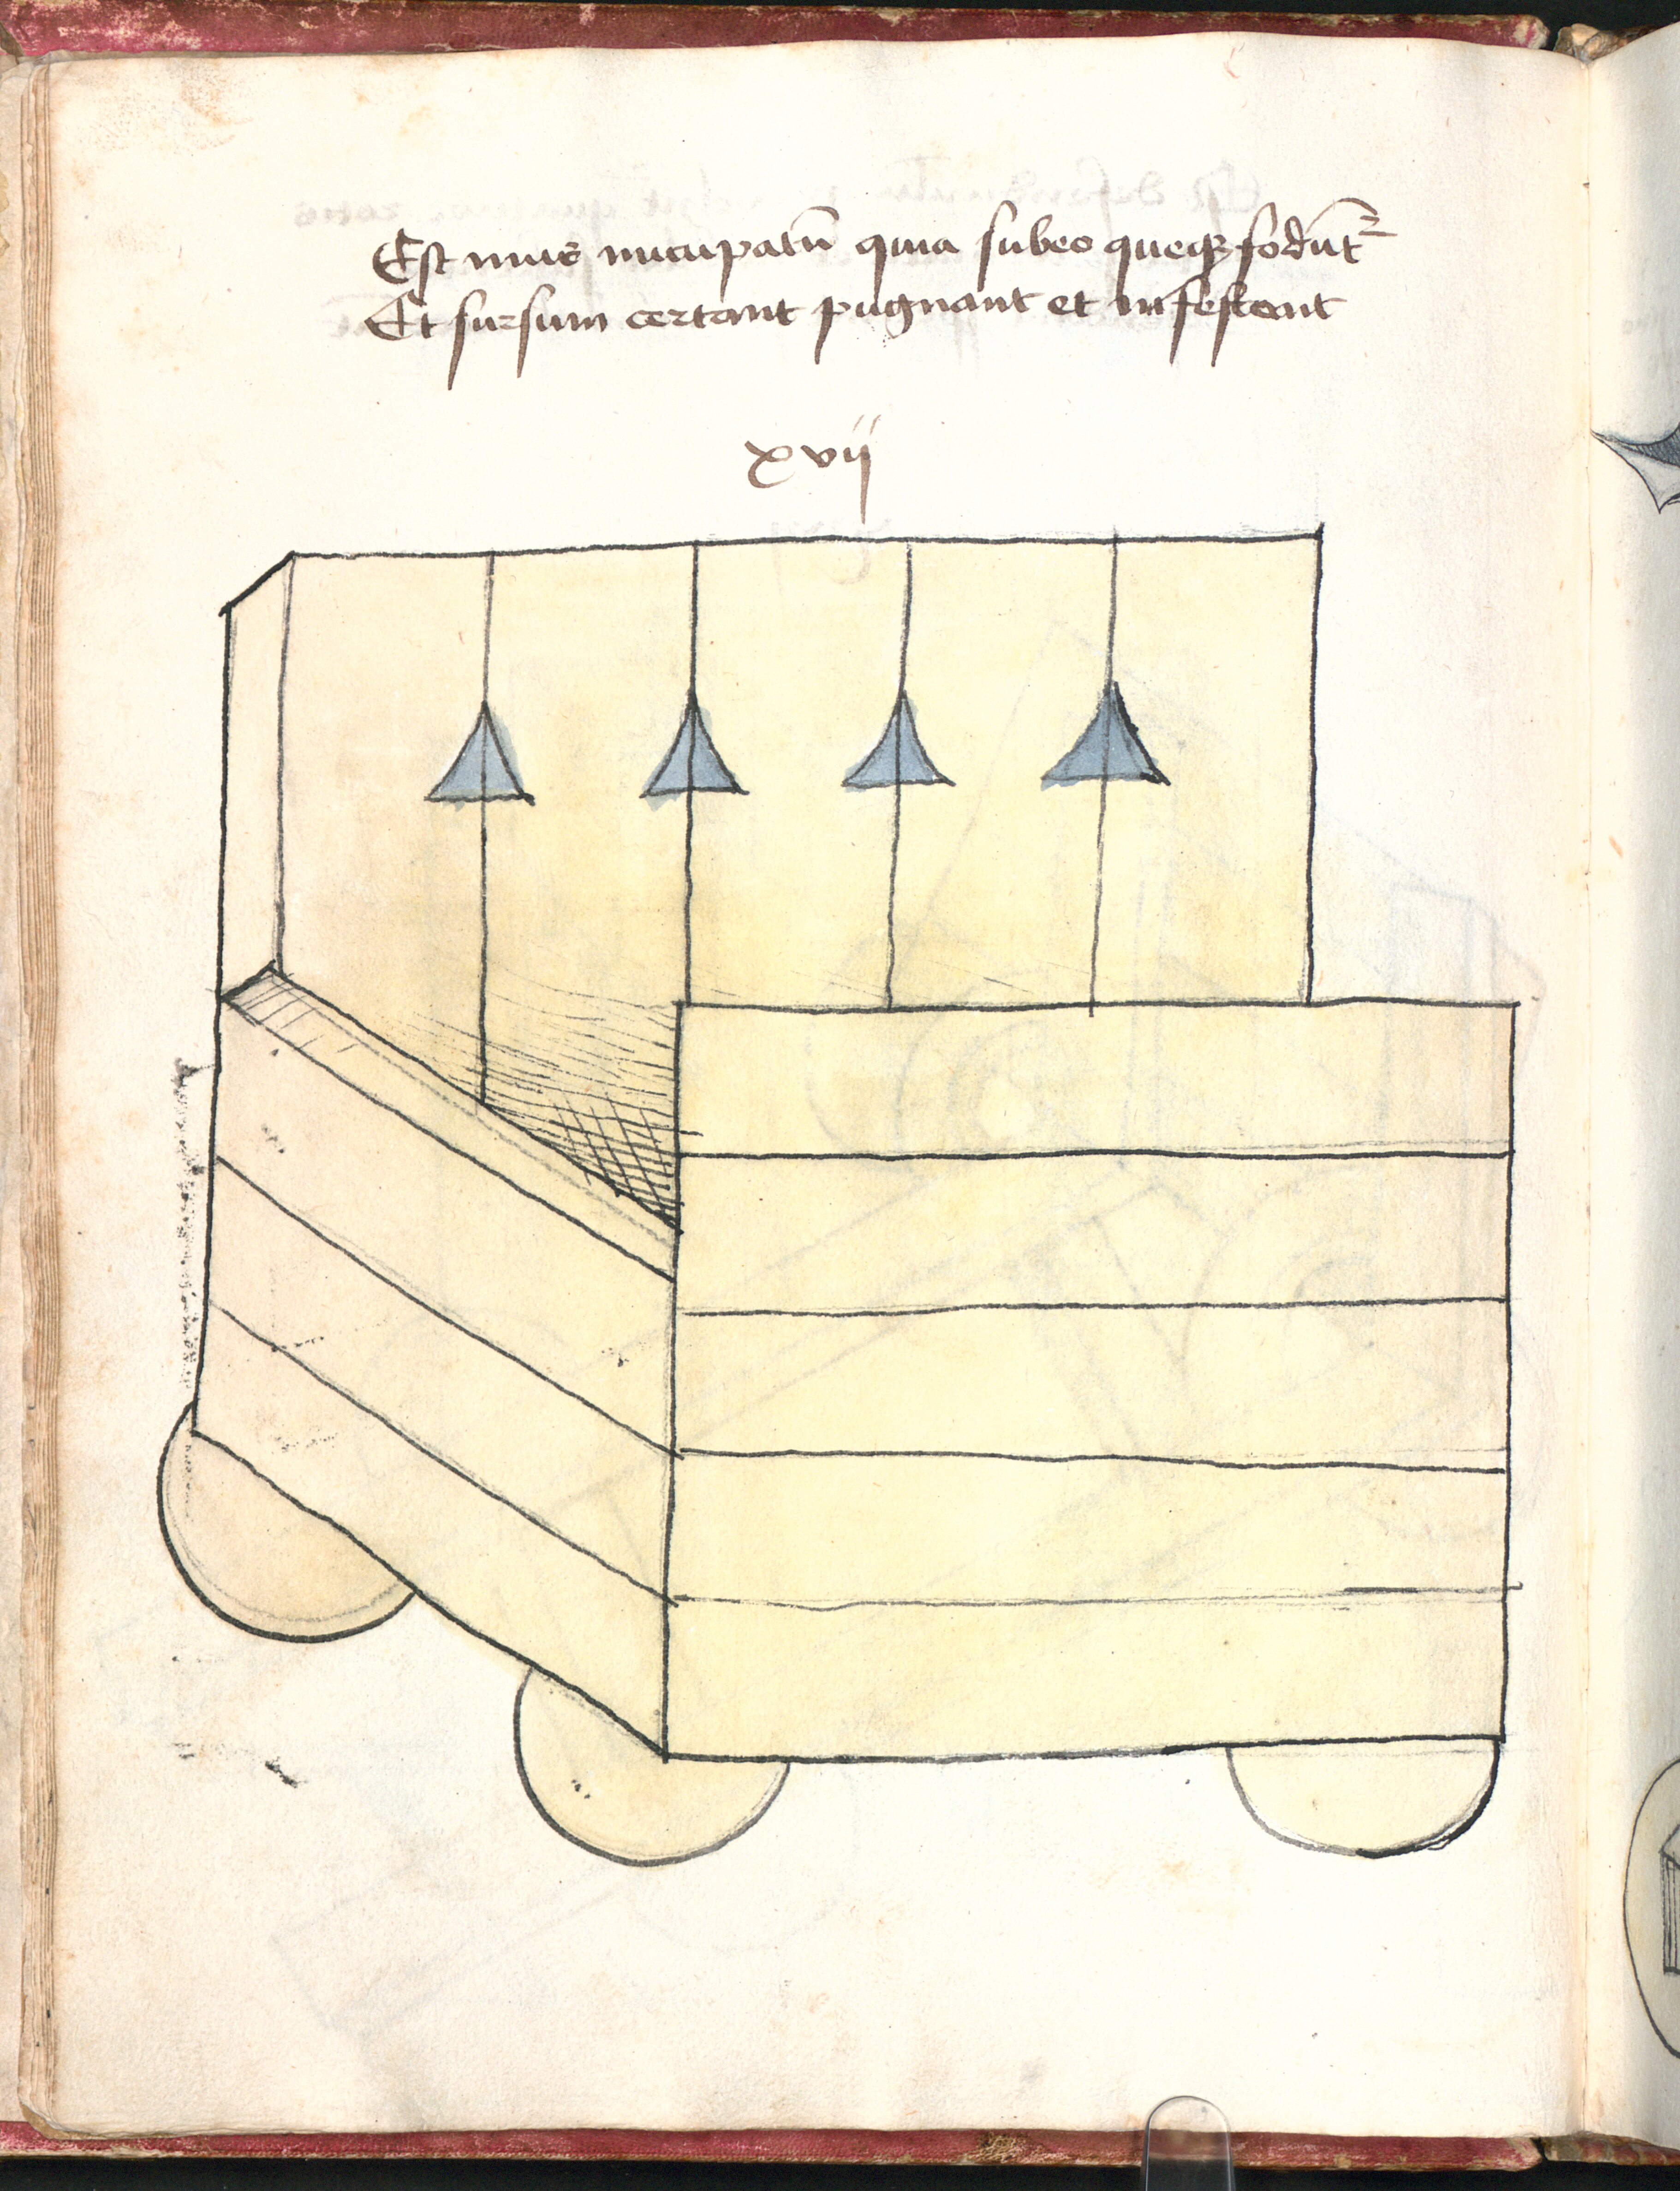 Est mus nūcupatū quia subeo queqꝫ fodūtˀ
Et sursum certant pugnant et infestant
xvij